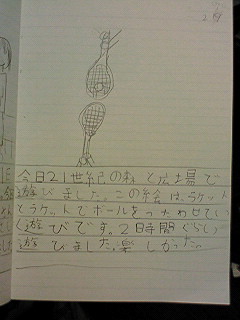 29
今日21世紀の森と広場で
遊びました。この絵は、ラケット
とラケットでボールをつたわせてい
く遊びです。2時間ぐらい
遊びました。楽しかった。